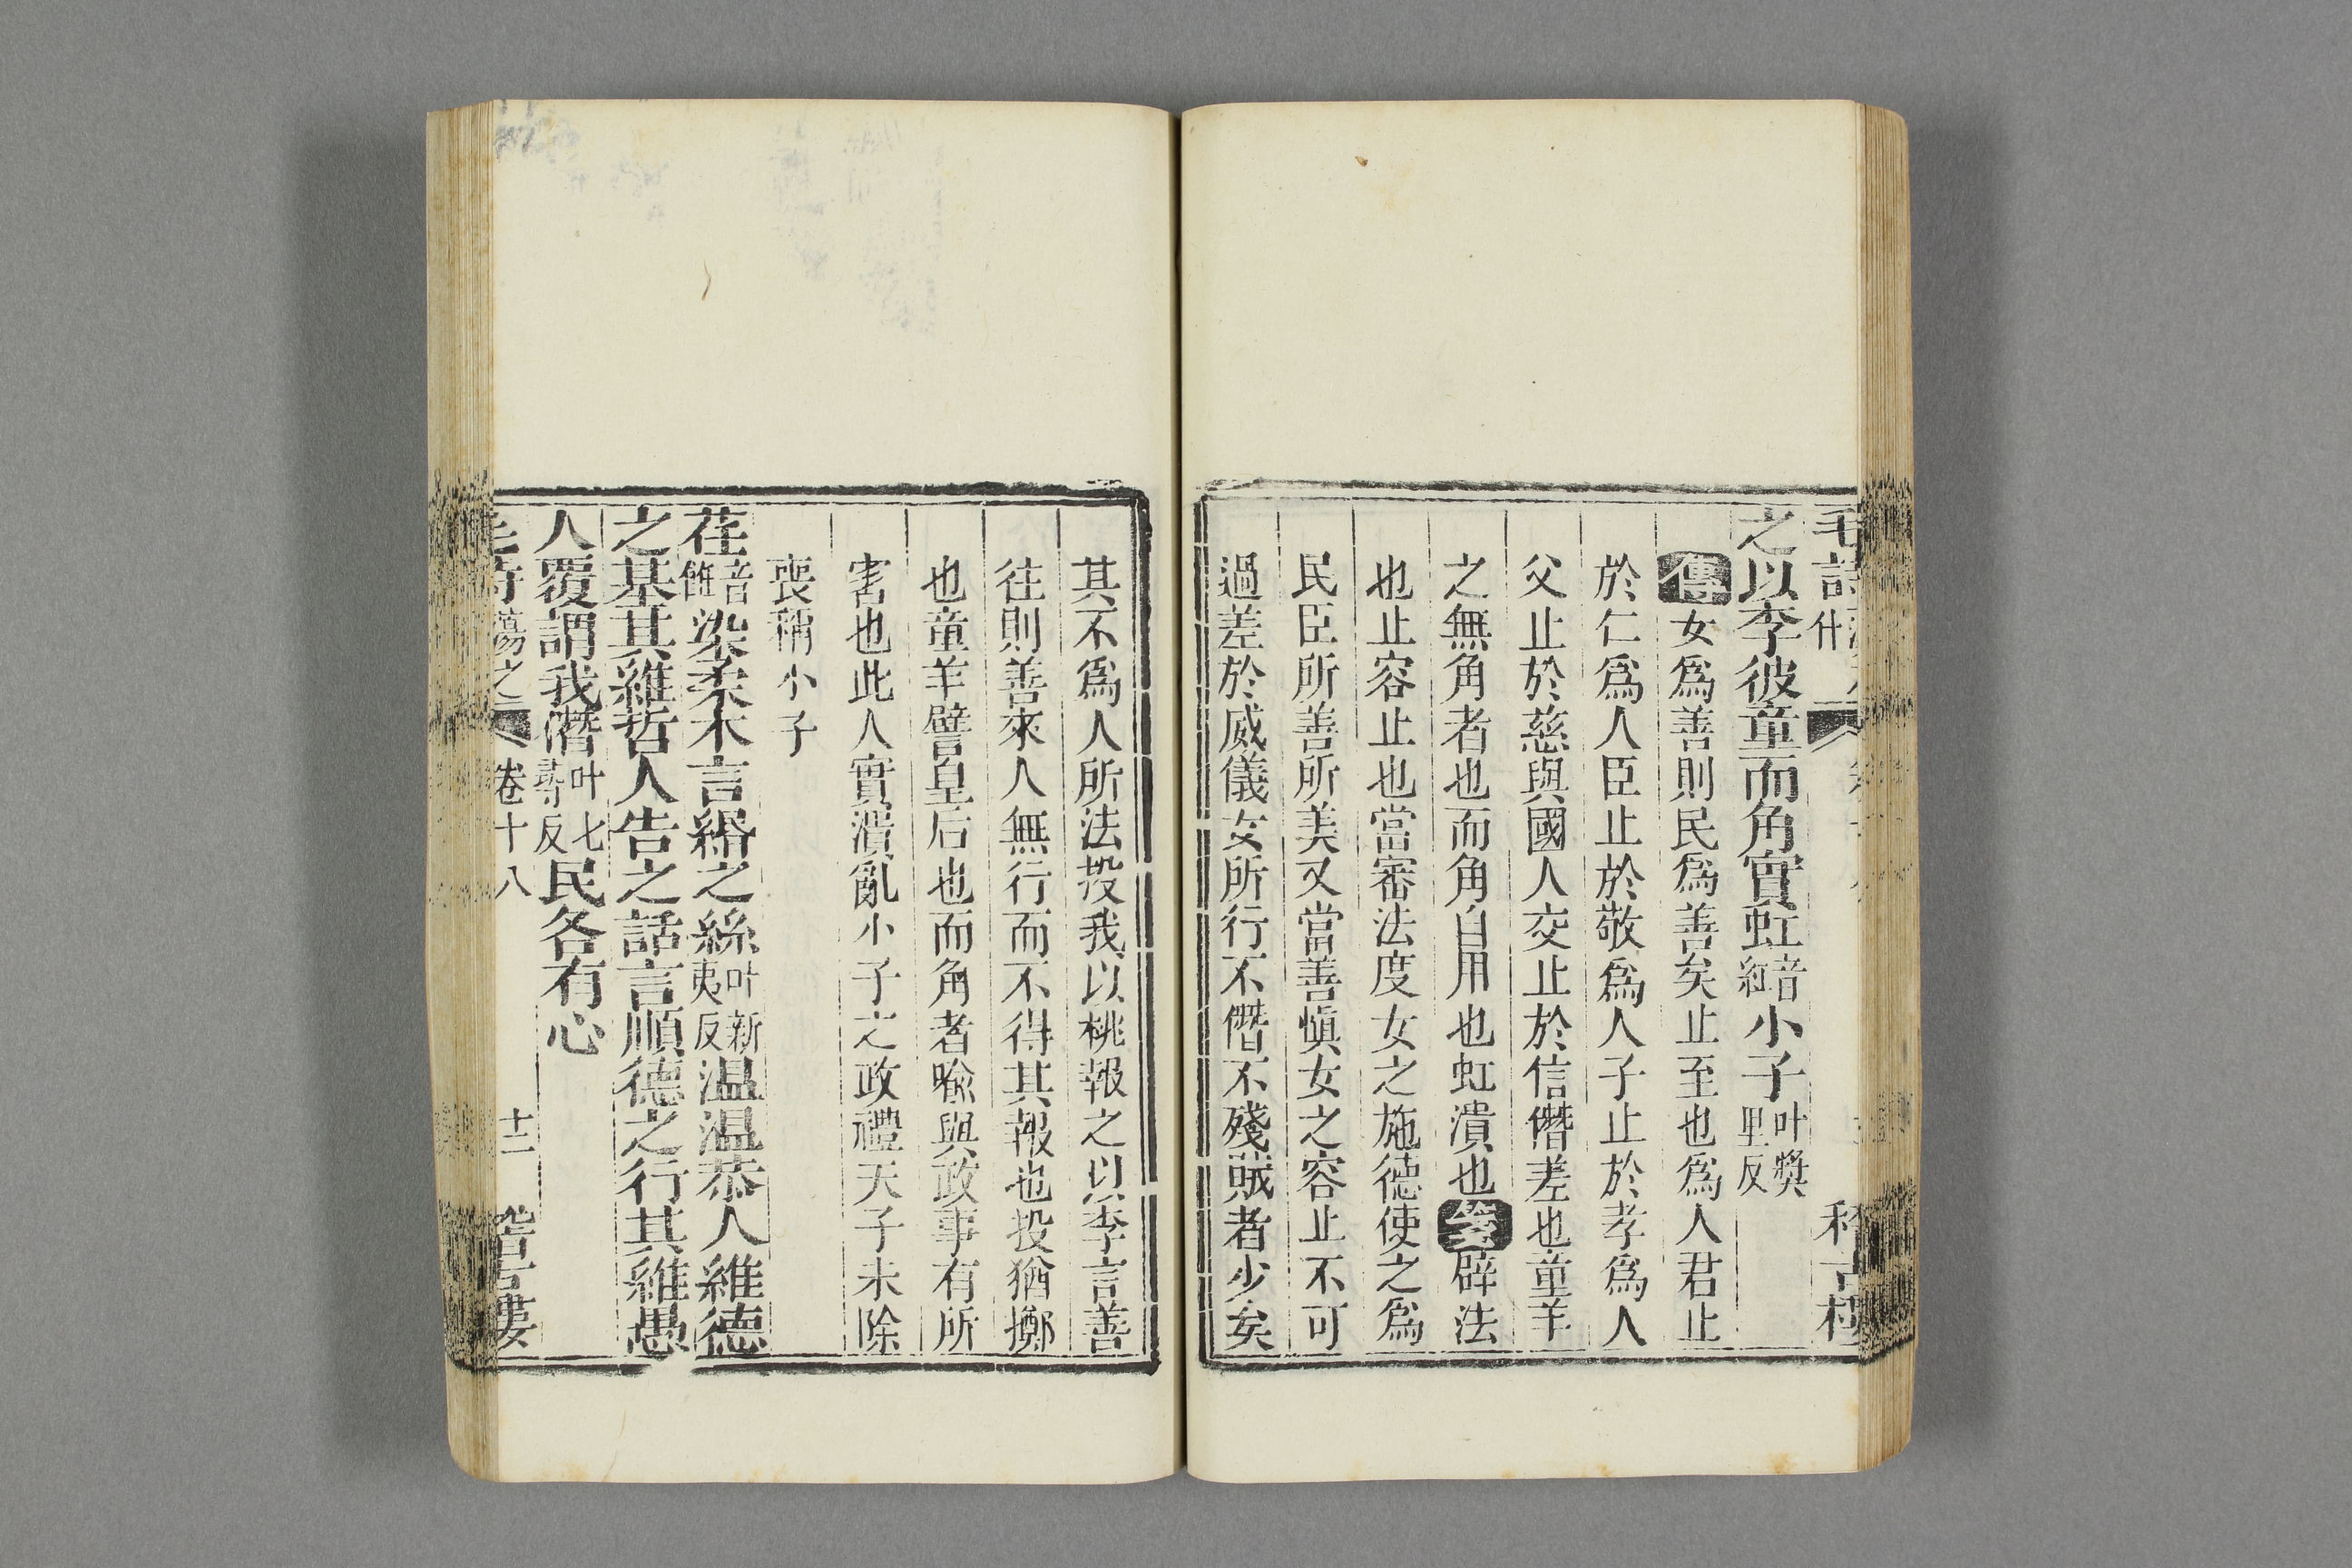 毛詩 什 稽古樓
之以李彼童而角實虹音紅小子叶獎里反
傳女爲善則民爲善矣止至也爲人君止
於仁爲人臣止於敬爲人子止於孝爲人
父止於慈與國人交止於信僭差也童羊
之無角者也而角自用也虹潰也箋辟法
也止容止也當審法度女之施德使之爲
民臣所善所美又當善愼女之容止不可
過差於威儀女所行不僭不殘賊者少矣
其不爲人所法投我以桃報之以李言善
往則善來人無行而不得其報也投猶擲
也童羊譬皇后也而角者喩與政事有所
害也此人實潰亂小子之政禮天子未除
喪稱小子
荏音飪染柔木言緡之絲叶新夷反温温恭人維德
之基其維哲人告之話言順德之行其維愚
人覆謂我僭叶七尋反民各有心
毛詩 蕩之 卷十八 十二 稽古樓